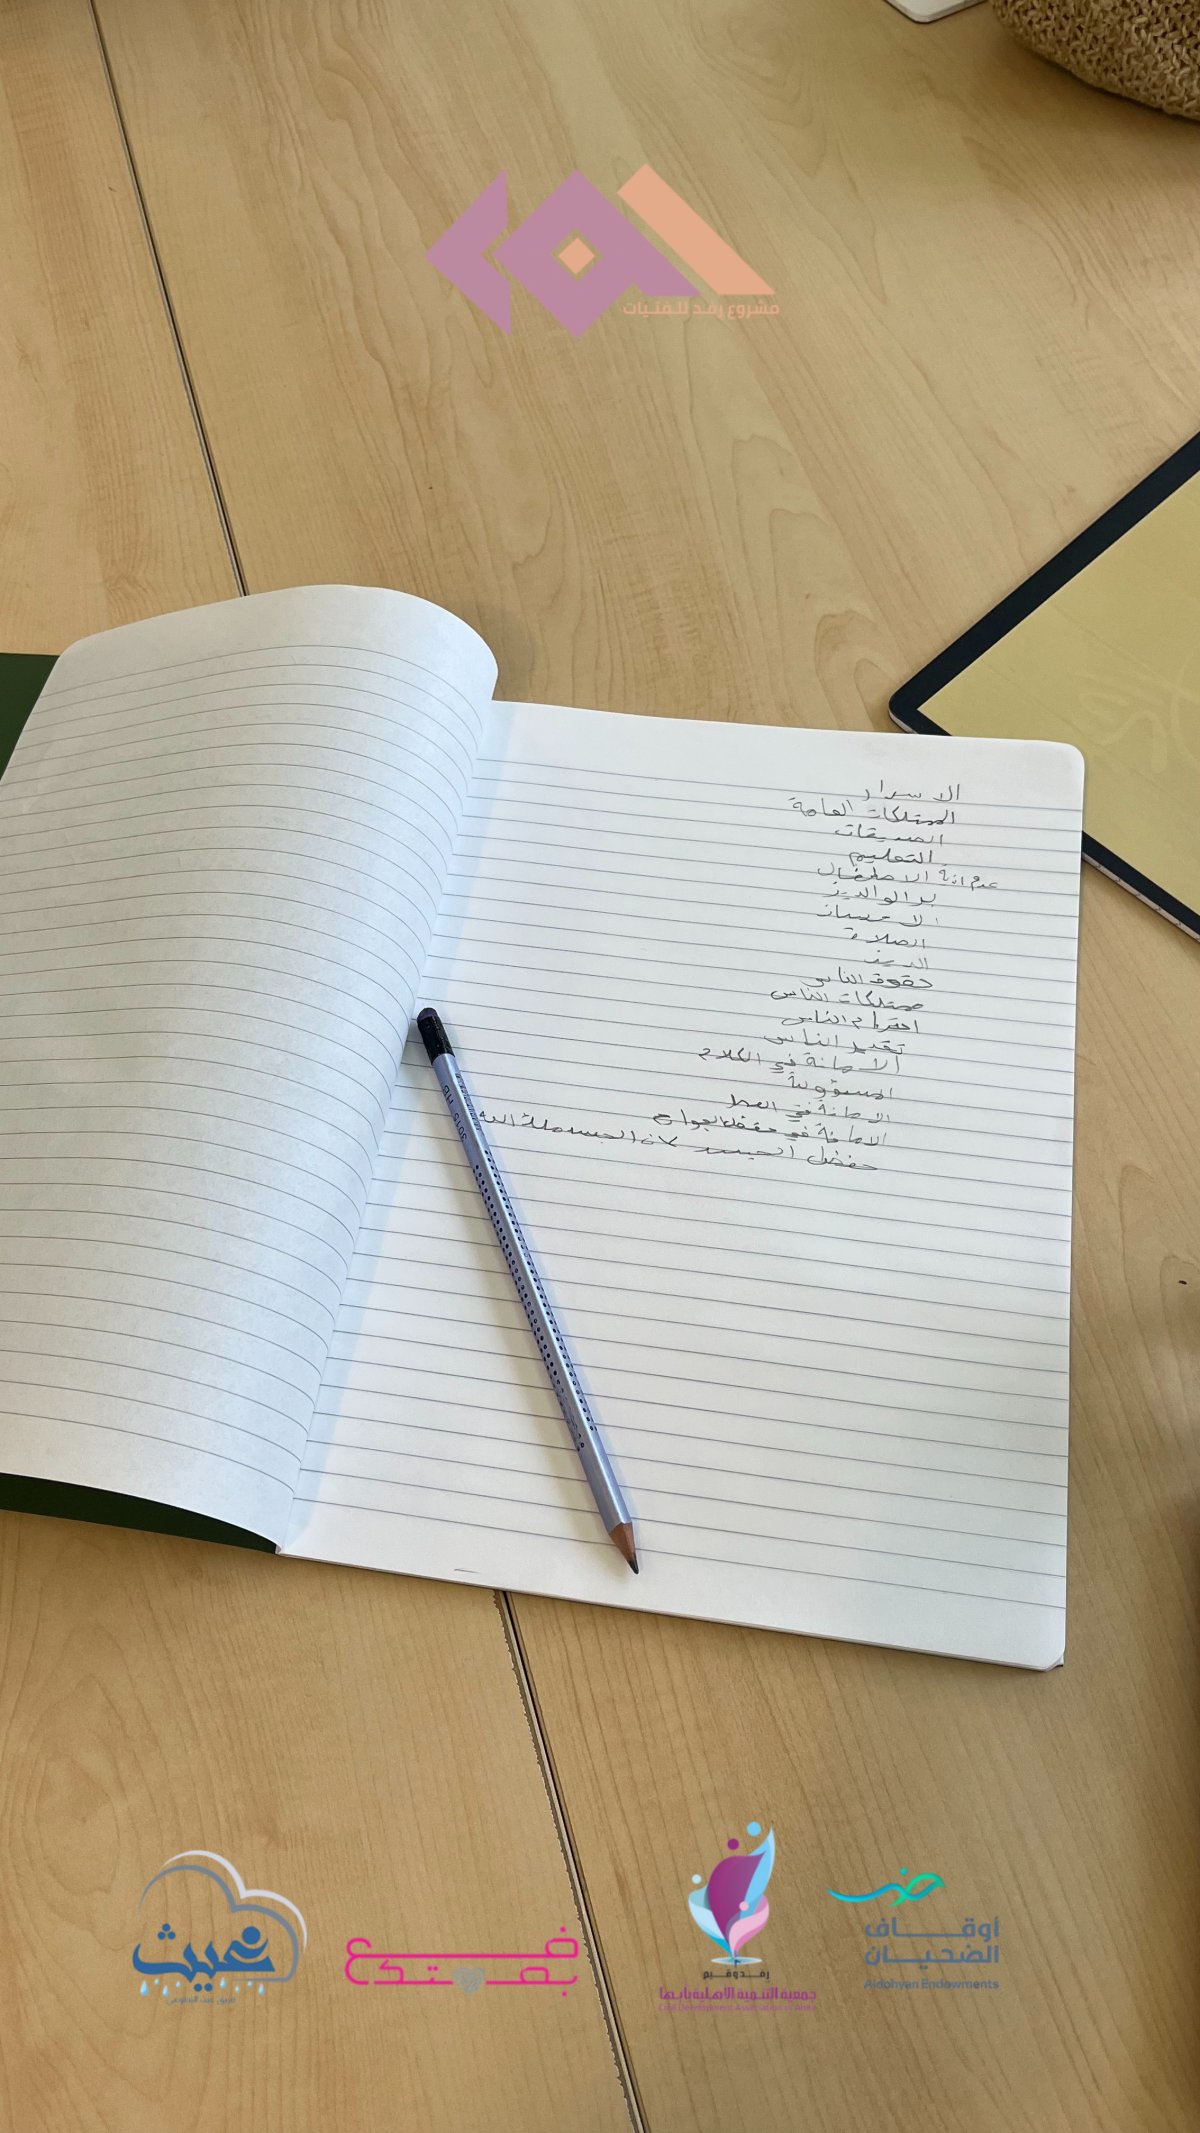 مشروع رمد للفتيات
الاسرار
الممتلكات العامة
الصديقات
التعليم
عدم اذية الاطفال
بر الوالدين
الاحسان
الصلاة
الدين
حقوق الناس
ممتلكات الناس
احترام الناس
تقدير الناس
الامانة في الكلام
المسؤولية
الامانة في العمل
الامانة في حفظ الجوارح
حفظ الجسد لان الجسد ملك الله
3015 HB
غيث
ضع
بصمتك
رمد وقيم
جمعية التنمية الاهلية بأبها
Civil Development Association of Abha
أوقاف
الضحيان
Aldohyan Endowments